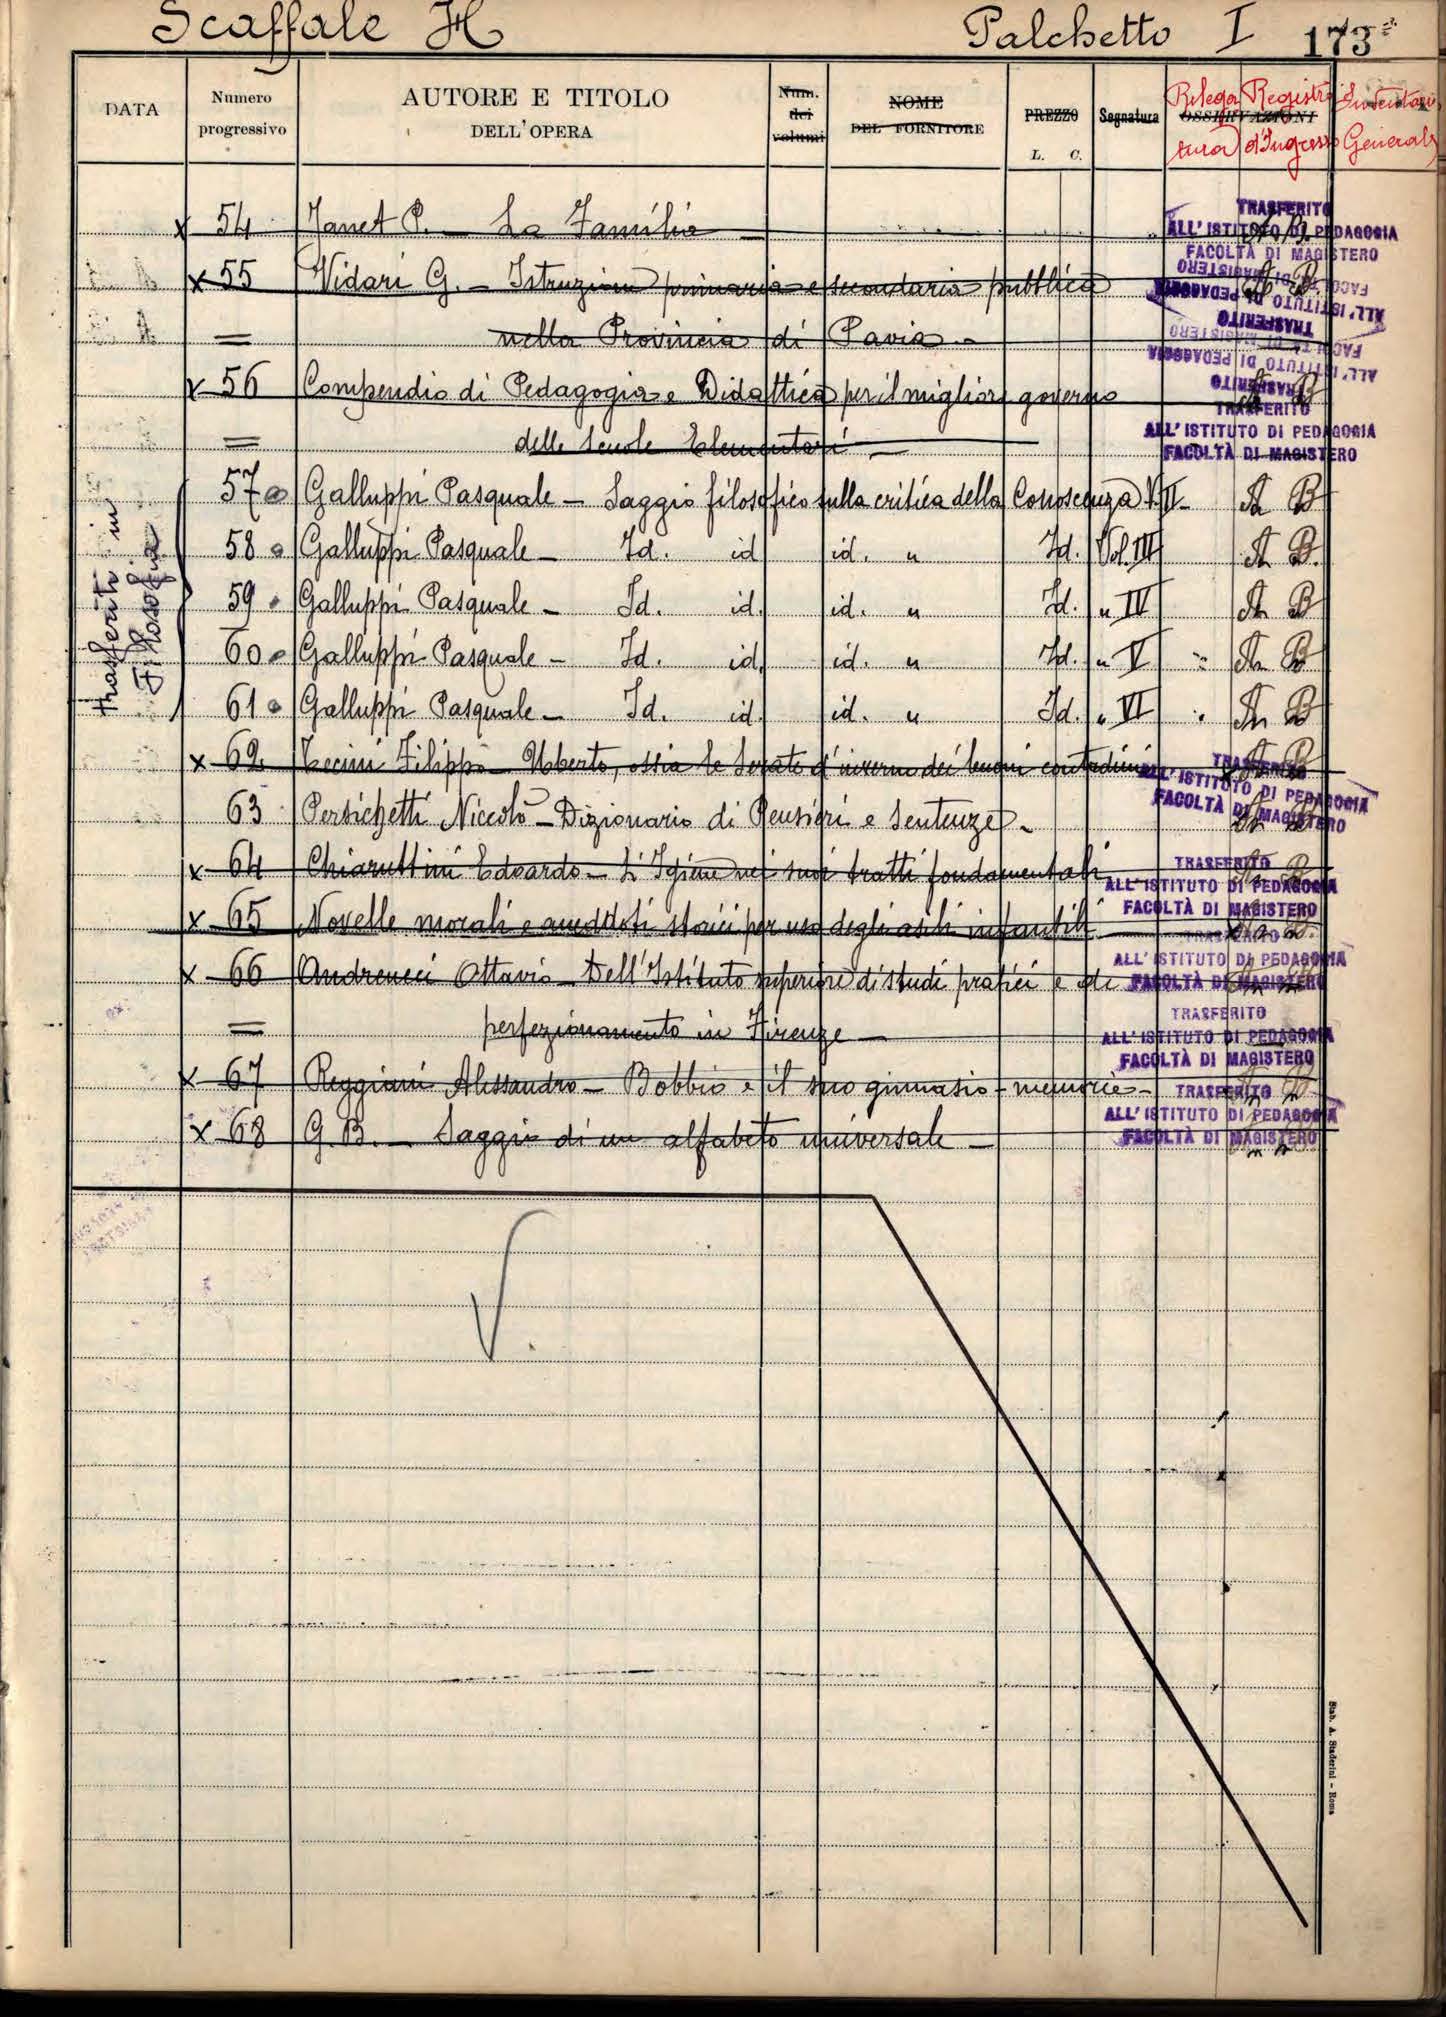 Scaffale H Palchetto I 173
DATA Numero progressivo AUTORE E TITOLO DELL'OPERA Num. dei volumi NOME DEL FORNITORE PREZZO L. C. Segnatura OSSERVAZIONI
Rilegatura Registro d'Ingresso Inventario Generale
x 54 Janet P. — La Familia —
TRASFERITO
ALL'ISTITUTO DI PEDAGOGIA
FACOLTÀ DI MAGISTERO
x 55 Vidari G. — Istruzione primaria e secondaria pubblica B.
= nella Provincia di Pavia. —
TRASFERITO
ALL'ISTITUTO DI PEDAGOGIA
FACOLTÀ DI MAGISTERO
x 56 Compendio di Pedagogia e Didattica per il miglior governo B
TRASFERITO
ALL'ISTITUTO DI PEDAGOGIA
FACOLTÀ DI MAGISTERO
= delle Scuole Elementari —
TRASFERITO
ALL'ISTITUTO DI PEDAGOGIA
FACOLTÀ DI MAGISTERO
trasferiti in
Filosofia
57 Galluppi Pasquale — Saggio filosofico sulla critica della Conoscenza V. II — B
58 Galluppi Pasquale — Id. id id. " Id. Vol. III B.
59 Galluppi Pasquale — Id. id. id. " Id. " IV B
60 Galluppi Pasquale — Id. id. id. " Id. " V B
61 Galluppi Pasquale — Id. id. id. " Id. " VI B
x 62 Filippo Uberto, ossia le Serate d'inverno dei buoni contadini B
TRASFERITO
ALL'ISTITUTO DI PEDAGOGIA
FACOLTÀ DI MAGISTERO
63 Persichetti Niccolò — Dizionario di Pensieri e Sentenze —
x 64 Chiaruttini Edoardo — L'Igiene nei suoi tratti fondamentali B
TRASFERITO
ALL'ISTITUTO DI PEDAGOGIA
FACOLTÀ DI MAGISTERO
x 65 Novelle morali e aneddoti storici per uso degli asili infantili B.
TRASFERITO
ALL'ISTITUTO DI PEDAGOGIA
FACOLTÀ DI MAGISTERO
x 66 Andreucci Ottavio — Dell'Istituto superiore di studi pratici e di
= perfezionamento in Firenze —
TRASFERITO
ALL'ISTITUTO DI PEDAGOGIA
FACOLTÀ DI MAGISTERO
x 67 Reggiani Alessandro — Bobbio e il suo ginnasio — memorie — B
TRASFERITO
ALL'ISTITUTO DI PEDAGOGIA
FACOLTÀ DI MAGISTERO
x 68 G. B. — Saggio di un alfabeto universale —
Stab. A. Staderini - Roma